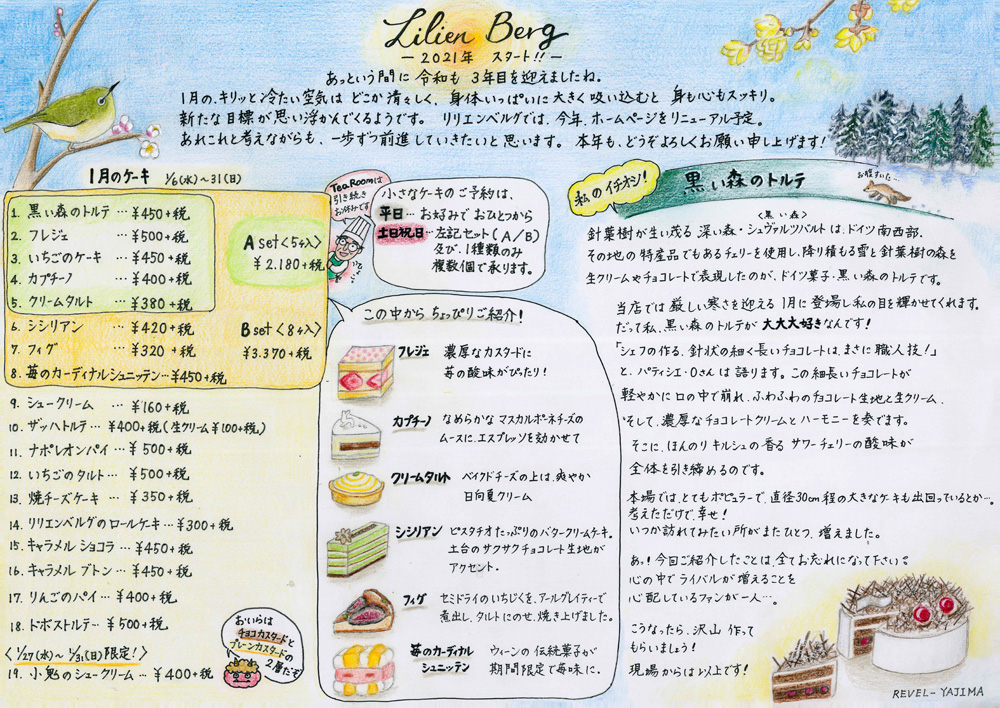 Lilien Berg
－2021年 スタート!!－
あっという間に 令和も 3年目を迎えましたね。
1月の、キリッと冷たい空気は どこか清々しく、身体いっぱいに大きく吸い込むと 身も心もスッキリ。
新たな目標が思い浮かんでくるようです。 リリエンベルグでは、今年、ホームページをリニューアル予定。
あれこれと考えながらも、一歩ずつ前進していきたいと思います。 本年も、どうぞよろしくお願い申し上げます!
1月のケーキ 1/6(水)～31(日)
1. 黒い森のトルテ … ¥450+税
2. フレジェ … ¥500+税
3. いちごのケーキ … ¥450+税
4. カプチーノ … ¥400+税
5. クリームタルト … ¥380+税
A set<5ヶ入>
¥2.180+税
6. シシリアン … ¥420+税
7. フィグ … ¥320+税
8. 苺のカーディナルシュニッテン…¥450+税
B set<8ヶ入>
¥3.370+税
9. シュークリーム … ¥160+税
10. ザッハトルテ … ¥400+税(生クリーム¥100+税)
11. ナポレオンパイ … ¥500+税
12. いちごのタルト … ¥500+税
13. 焼チーズケーキ … ¥350+税
14. リリエンベルグのロールケーキ … ¥300+税
15. キャラメル ショコラ … ¥450+税
16. キャラメル ブトン … ¥450+税
17. りんごのパイ … ¥400+税
18. ドボストルテ … ¥500+税
<1/27(水)～1/31(日)限定!>
19. 小鬼のシュークリーム … ¥400+税
おいらは
チョコカスタードと
プレーンカスタードの
2層だぞ
Tea Roomは
引き続き
お休みです
小さなケーキのご予約は、
平日… お好みで おひとつから
土日祝日… 左記セット(A/B)
及び、1種類のみ
複数個で承ります。
この中から ちょっぴりご紹介!
フレジェ 濃厚なカスタードに
苺の酸味がぴったり!
カプチーノ なめらかな マスカルポーネチーズの
ムースに、エスプレッソを効かせて
クリームタルト ベイクドチーズの上は、爽やか
日向夏クリーム
シシリアン ピスタチオたっぷりのバタークリームケーキ。
土台のサクサクチョコレート生地が
アクセント.
フィグ セミドライのいちじくを、アールグレイティーで
煮出し、タルトにのせ、焼き上げました。
苺のカーディナル
シュニッテン
ウィーンの 伝統菓子が
期間限定で苺味に。
私のイチオシ!
黒い森のトルテ
お腹すいた…
<黒い森>
針葉樹が生い茂る 深い森・シュヴァルツバルトは、ドイツ南西部.
その地の特産品でもあるチェリーを使用し、降り積もる雪と針葉樹の森を
生クリームやチョコレートで表現したのが、ドイツ菓子・黒い森のトルテです。
当店では 厳しい寒さを迎える 1月に登場し私の目を輝かせてくれます。
だって私、黒い森のトルテが 大大大好きなんです!
「シェフの作る、針状の細く長いチョコレートは、まさに職人技!」
と、パティシエ・Oさんは 語ります。この細長いチョコレートが
軽やかに口の中で崩れ、ふわふわのチョコレート生地と生クリーム、
そして、濃厚なチョコレートクリームとハーモニーを奏でます。
そこに、ほんのりキルシュの香る サワーチェリーの酸味が
全体を引き締めるのです。
本場では、とてもポピュラーで、直径30cm程の大きなケーキも出回っているとか…
考えただけで、幸せ!
いつか訪れてみたい所がまたひとつ、増えました。
あ、! 今回ご紹介したことは、全てお忘れになって下さい。
心の中でライバルが増えることを
心配しているファンが一人…。
こうなったら、沢山 作って
もらいましょう!
現場からは以上です!
REVEL-YAJIMA